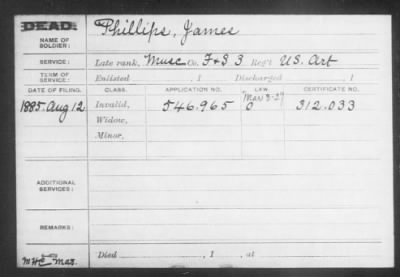 DEAD.
Phillips, James
NAME OF
SOLDIER:
SERVICE: Late rank, Musc Co. F&S 3 Reg't U.S. Art
TERM OF
SERVICE: Enlisted , 1 Discharged , 1
DATE OF FILING. CLASS. APPLICATION NO. LAW. CERTIFICATE NO.
1885, Aug 12 Invalid, 546.965 O 312.033
Widow,
Minor,
ADDITIONAL
SERVICES:
REMARKS:
Died , 1 , at